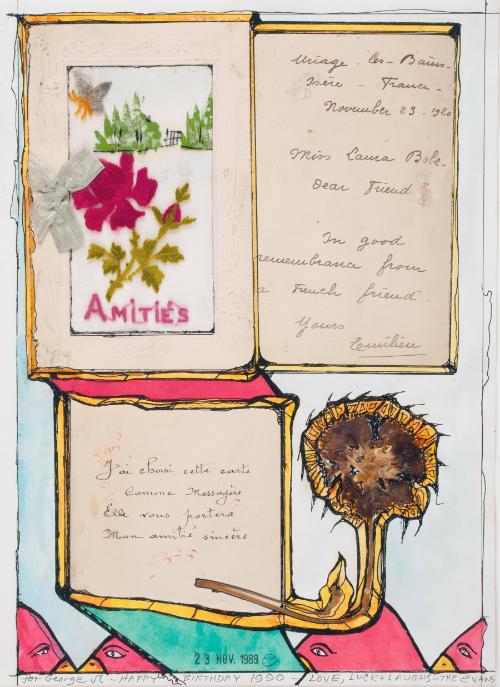 AMITIÉS
Uriage - les - Bains -
Isère - France -
November 23 - 1920
Miss Laura
Dear Friend
In good
remembrance from
a French friend -
Yours
Emilien
J'ai choisi cette carte
Comme Messagère
Elle vous portera
Mon amitié sincère
23 NOV. 1989
for George VL - HAPPY BIRTHDAY 1990 - LOVE, LUCK + LAUGHS - THE EVANS